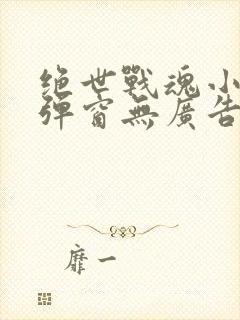 绝世戰魂小
彈窗無廣告
靡一